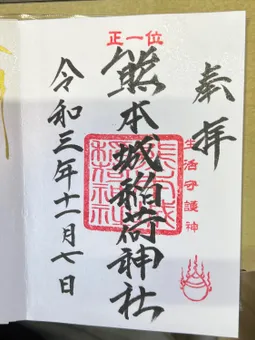 奉拝
生活守護神
正一位
熊本城稲荷神社
令和三年十一月七日